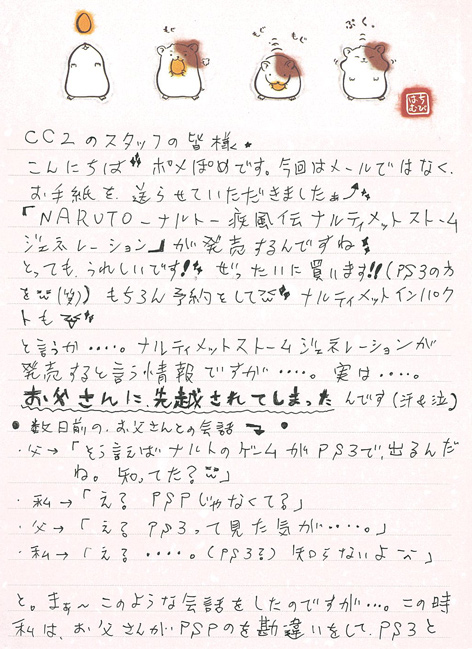 もぐ
もぐ
もぐ
ぷく。
はちむび
CC2のスタッフの皆様。
こんにちは ポメぽめです。今回はメールではなく、
お手紙を送らせていただきましたぁ
「NARUTO-ナルトー疾風伝ナルティメットストーム
ジェネレーション」が発売するんですね
とっても、うれしいです!! ぜったいに買います!!(PS3の方
を(笑)) もちろん予約として ナルティメットインパク
トも
と言うか‥‥。ナルティメットストームジェネレーションが
発売すると言う情報ですが‥‥。実は‥‥。
お父さんに先越されてしまったんです(汗&泣)
●数日前の、お父さんとの会話 ●
・父→「そう言えばナルトのゲームがPS3で、出るんだ
ね。知ってた?」
・私→「え? PSPじゃなくて?」
・父→「え? PS3って見た気が‥‥。」
・私→「え? ‥‥。(PS3?) 知らないよ~」
と。まぁ~このような会話をしたのですが‥‥。この時
私は、お父さんがPSPのを勘違いをして、PS3と